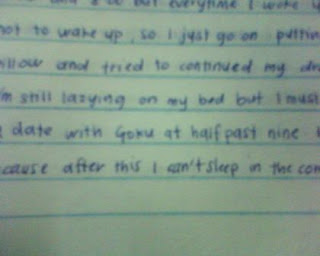 but everytime I woke
not to wake up, so I just go on puttin
illow and tried to continued my
I'm still lazying on my bed but I must
date with Goku at half past nine
cause after this I can't sleep in the con